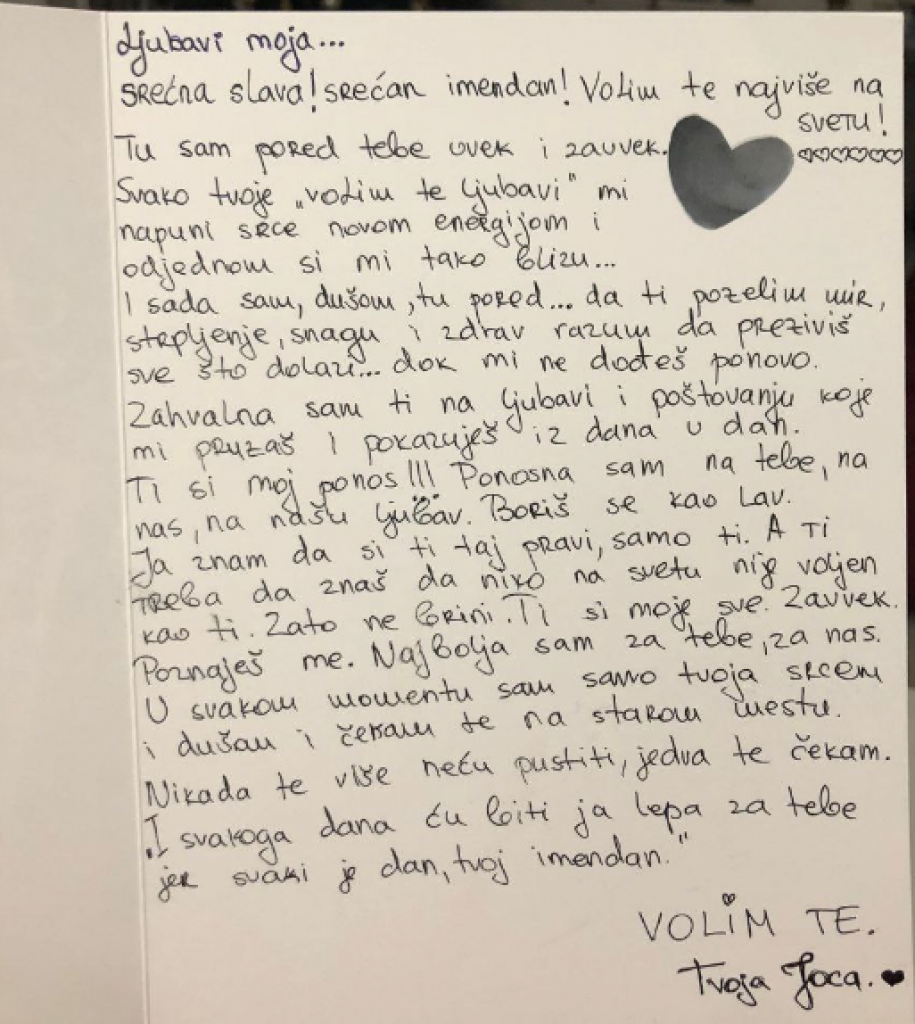 Ljubavi moja...
SREĆNA SLAVA! SREĆAN imendan! Volim te najviše na
SVETU!
Tu sam pored tebe uvek i zauvek.
Svako tvoje „volim te ljubavi" mi
napuni srce novom energijom i
odjednom si mi tako blizu...
I sada sam, dušom, tu pored... da ti pozelim mir,
strpljenje, snagu i zdrav razum da preziviš
sve što dolazi... dok mi ne dođeš ponovo.
Zahvalna sam ti na ljubavi i poštovanju koje
mi pruzaš i pokazuješ iz dana u dan.
Ti si moj ponos!!! Ponosna sam na tebe, na
nas, na našu ljubav. Boriš se kao Lav.
Ja znam da si ti taj pravi, samo ti. A TI
TREBA da znaš da niko na svetu nije voljen
kao ti. Zato ne brini. Ti si moje sve. Zauvek.
Poznaješ me. Najbolja sam za tebe, za nas.
U svakom momentu sam samo tvoja srcem
i dušom i čekam te na starom mestu.
Nikada te više neću pustiti, jedva te čekam.
„I svakoga dana ću biti ja lepa za tebe
jer svaki je dan, tvoj imendan."
VOLIM TE.
Tvoja Joca.